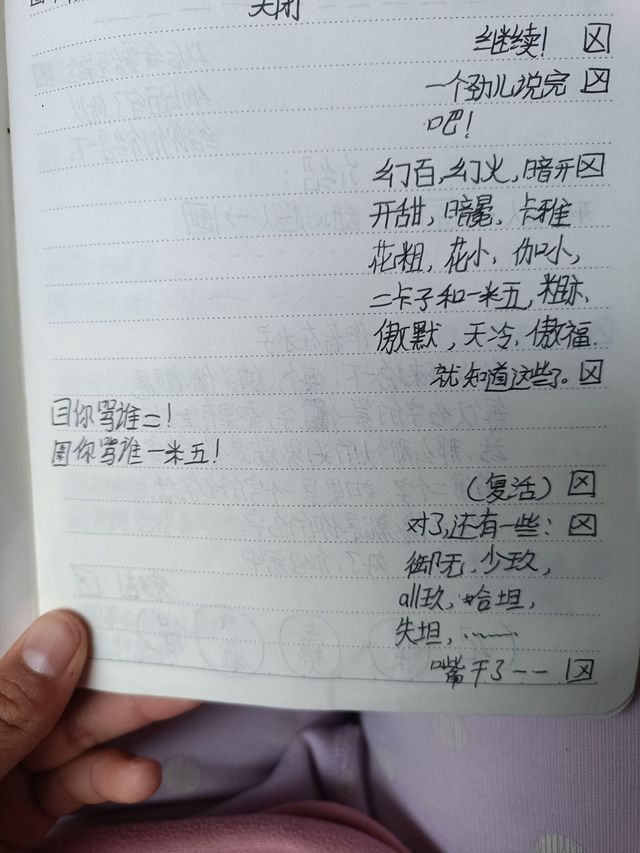 关闭
继续! 図
一个劲儿说完 図
吧!
幻百,幻火,暗开 図
开甜,暗晃、卡雅
花粗,花小,伽小,
二卡子和一米五,粗励、
傲默,天冷,傲福.
就知道这些了。図
你骂谁二!
你骂谁一米五!
(复活) 図
对了,还有一些: 図
御无、少玖,
all玖,哈坦,
失坦,……
嘴干了-- 図